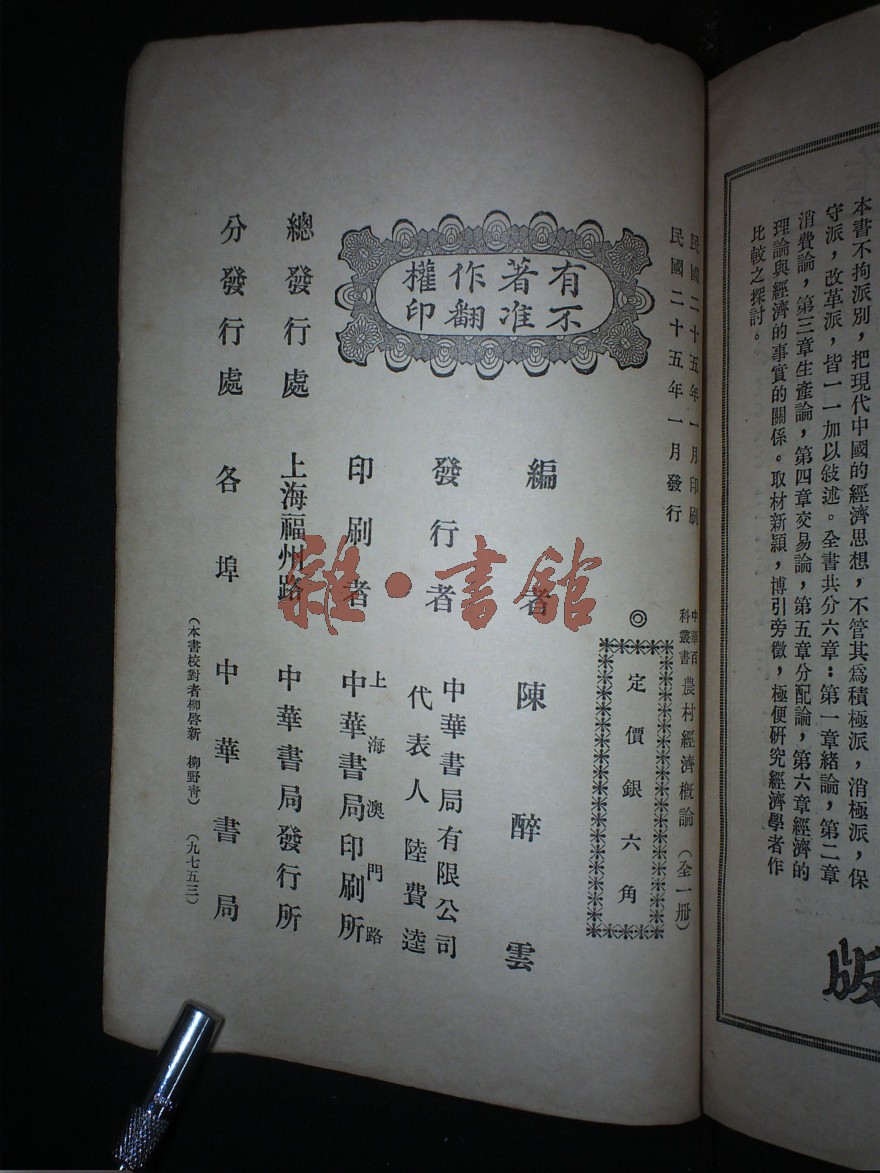 本書不拘派別，把現代中國的經濟思想，不管其爲積極派，消極派，保
守派，改革派，皆一一加以敍述。全書共分六章：第一章緒論，第二章
消費論，第三章生產論，第四章交易論，第五章分配論，第六章經濟的
理論與經濟的事實的關係。取材新穎，博引旁徵，極便研究經濟學者作
比較之探討。
版
民國二十五年一月印刷
民國二十五年一月發行
中華百科叢書 農村經濟概論（全一冊）
◎
定價銀六角
有著作權
不准翻印
編者 陳醉雲
發行者 中華書局有限公司
代表人 陸費逵
印刷者 上海澳門路
中華書局印刷所
總發行處 上海福州路 中華書局發行所
分發行處 各埠 中華書局
（本書校對者柳啓新 柳野靑）（九七五三）
雜·書館